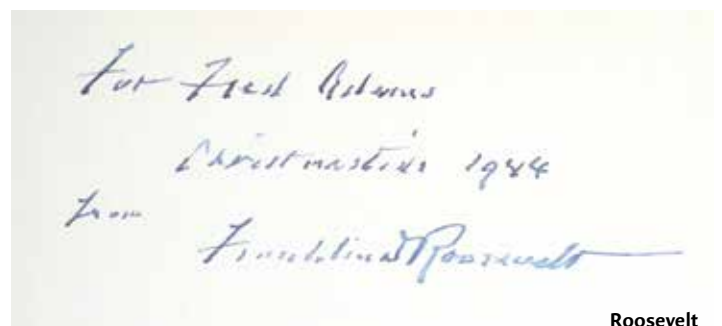 For Fred Adams
Christmastide 1944
From
Franklin D Roosevelt
Roosevelt